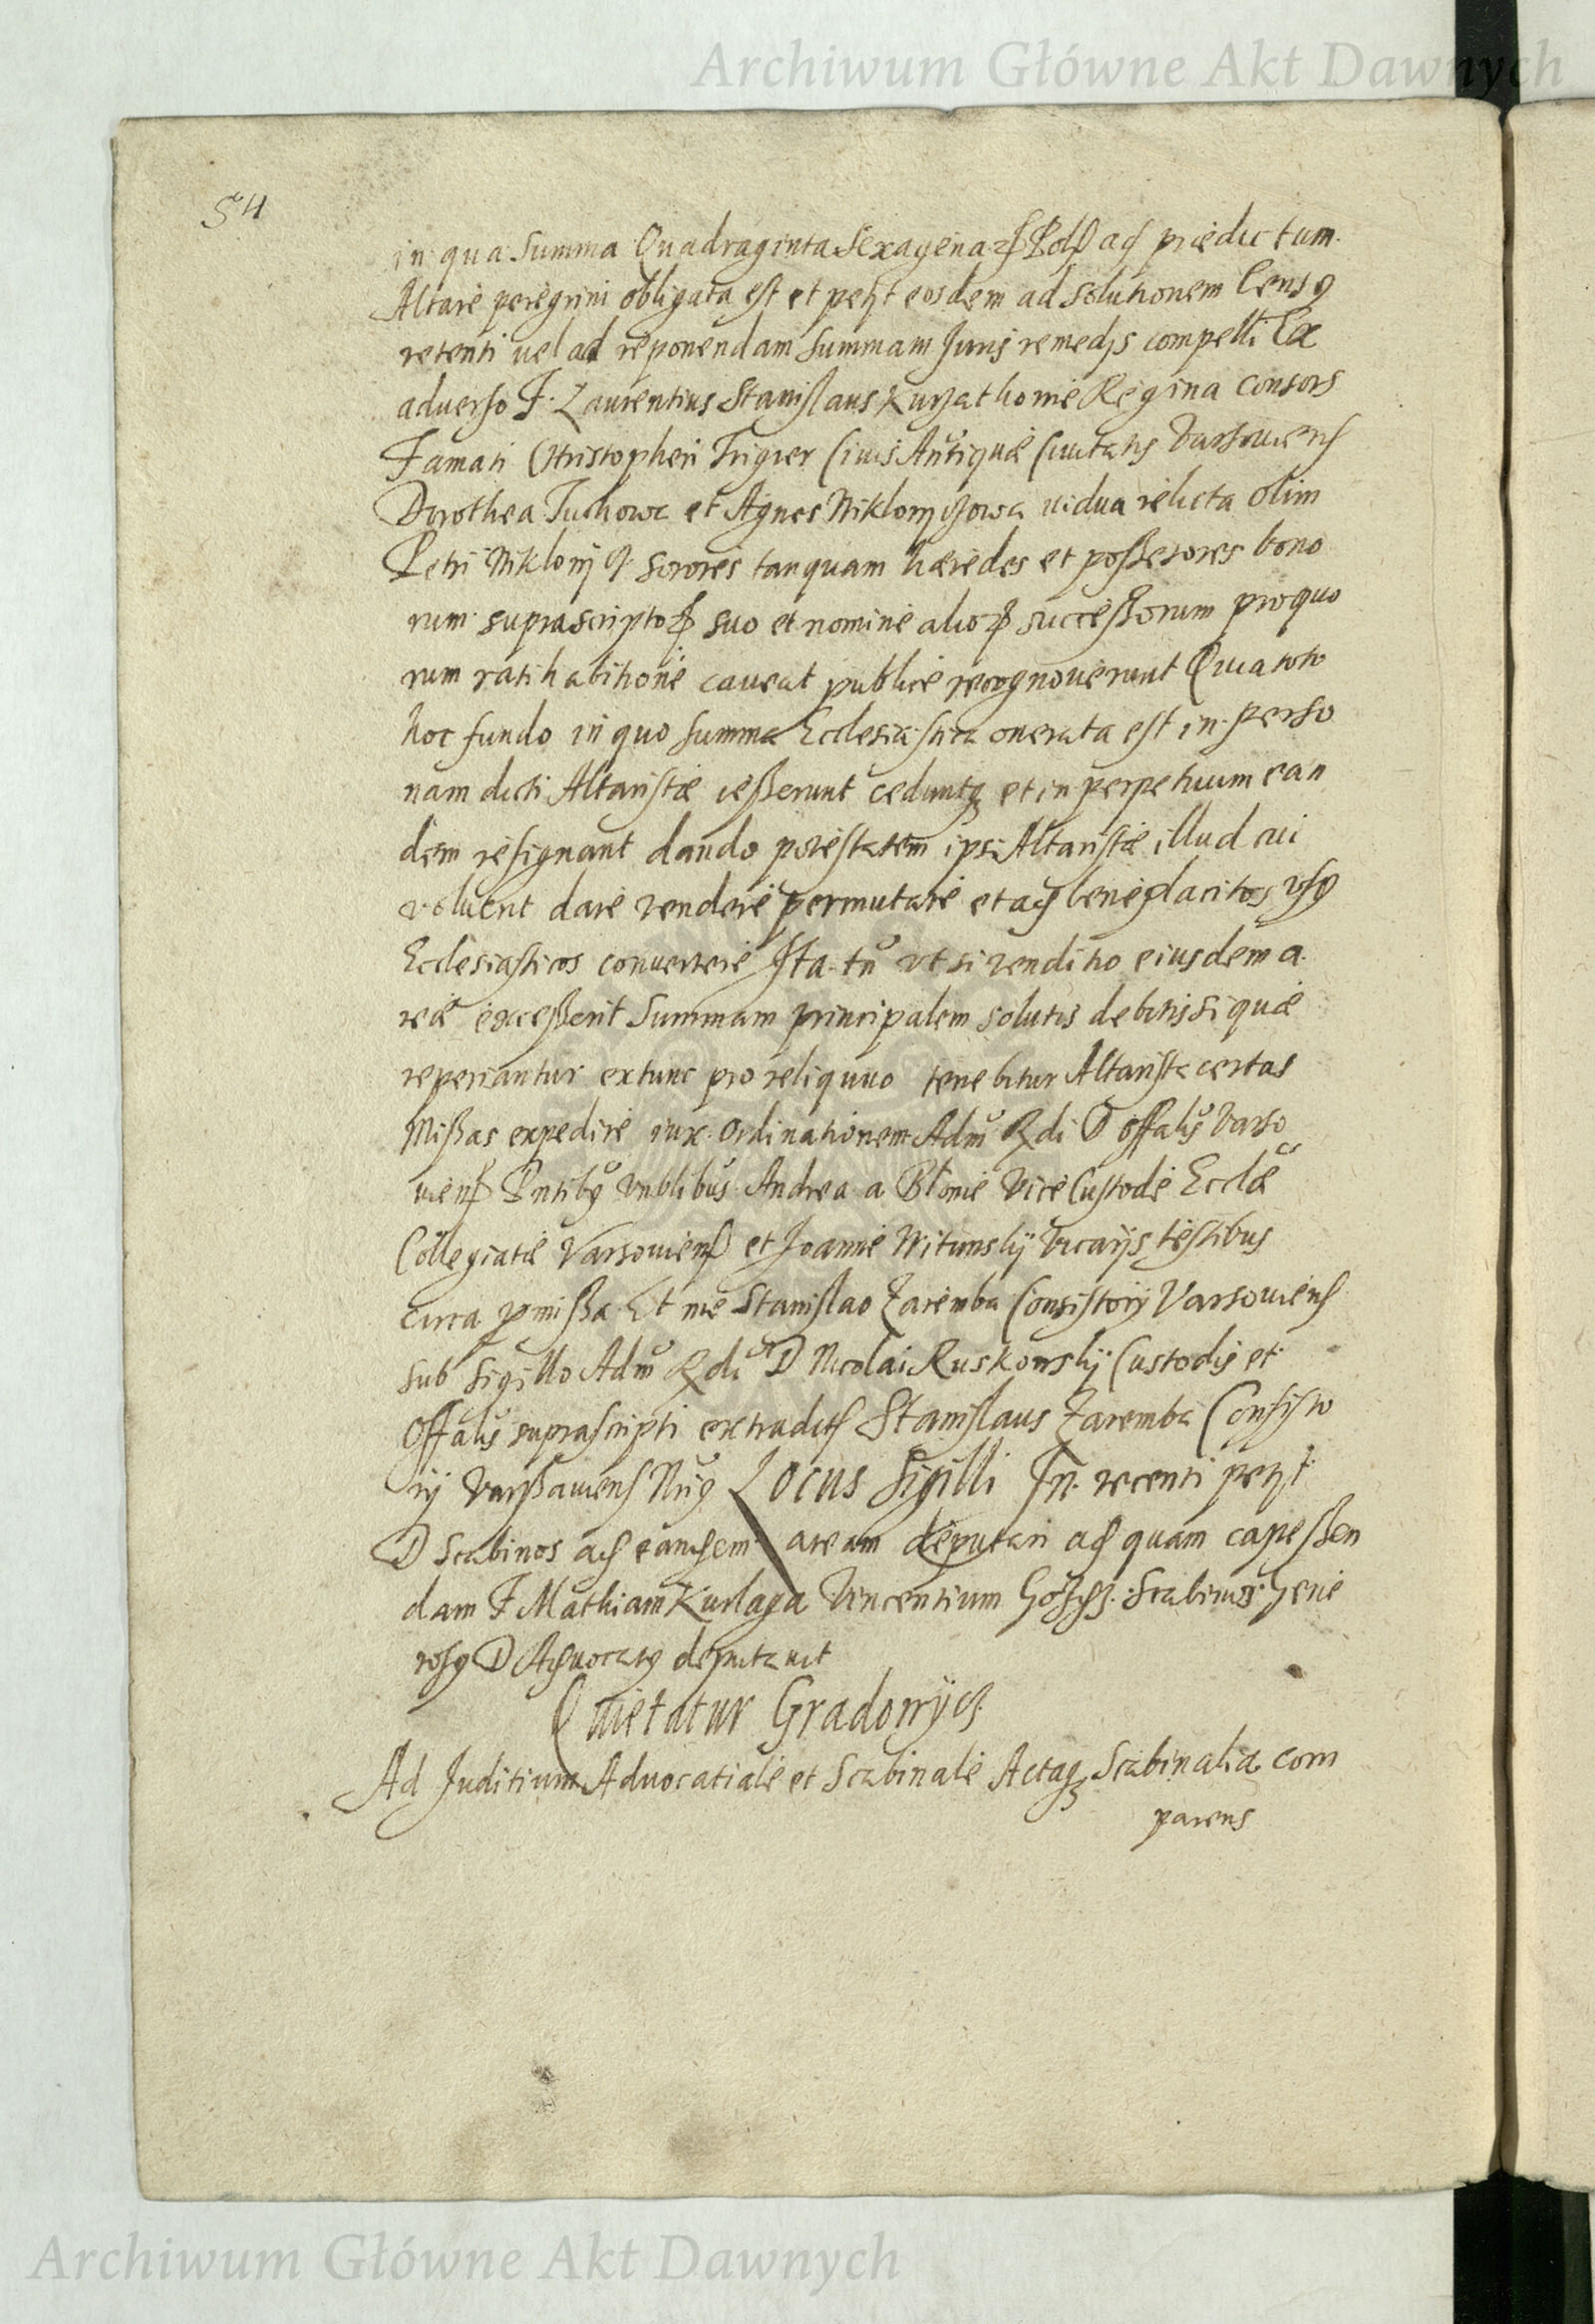 Archiwum Główne Akt Dawnych
54
in qua summa Quadraginta Sexagena ad prædictum
Altare peregrini obligata est et petyt eosdem ad solutionem Census
retenti vel ad reponendam summam Juris remedys compelli Ex
aduerso F. Laurentius Stanislaus Regina Consors
Famati Christopheri Trigier Ciuis Antiquæ Ciuitatis Varsouiens
Dorothea et Agnes vidua relicta olim
Petri sorores tanquam hæredes et possessores bono
rum suprascriptor suo et nomine alior successorum pro quo
rum ratihabitione caveat publice recognouerunt Quia toto
hoc fundo in quo summa Ecclesiastica onerata est in perso
nam dicti Altaristæ cesserunt ceduntq et in perpetuum ean
dem resignant dando potestatem ipsi Altaristæ illud cui
voluerit dare vendere permutare et ad beneplacitos usus
Ecclesiasticos conuertere Ita tn vt si venditio eiusdem a
reæ excesserit Summam principalem solutis debitis si quæ
reperiantur extunc pro reliquuo tenebitur Altarista certas
Missas expedire iux Ordinationem Adm Rdi D Offalis Varso
uiens Pntibus Vnblibus Andrea a Blonie Vice Custode Ecclæ
Collegiatæ Varsouiens et Joanne Witunsky Vicarys testibus
circa pmissa Et me Stanislao Zaremba Consistory Varsouiens
sub sigillo Adm Rdi D Nicolai Ruskowsky Custodis et
Offalis suprascripti extradits Stanislaus Zaremba Consisto
ry Varssauiens Nrius Locus Sigilli In recenti petyt
D Scabinos ad eandem aream deputari ad quam capessen
dam F Mathiam Kurlaga Vincentium Scabinos Gene
rosus D Aduocatus deputauit
Quietatur
Ad Juditium Aduocatiale et Scabinale Actaq Scabinalia com
parens
Archiwum Główne Akt Dawnych